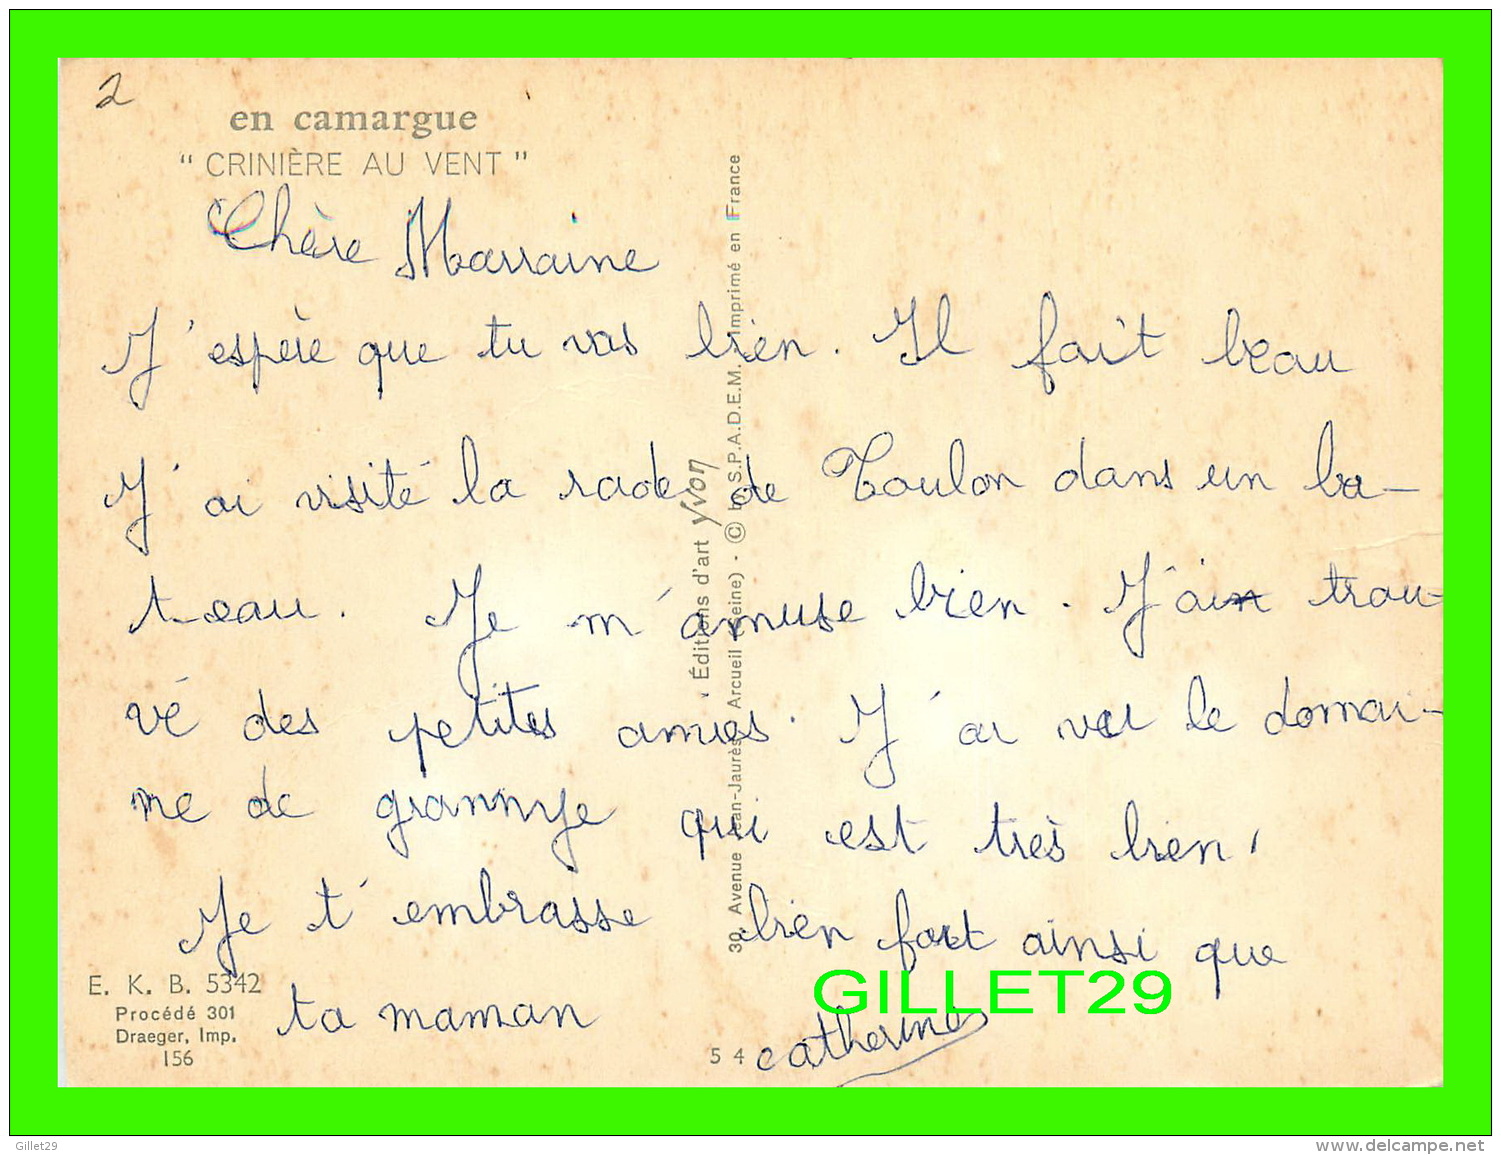 2
en camargue
" CRINIÈRE AU VENT "
Chère Marraine
J'espère que tu vas bien. Il fait beau
J'ai visité la rade de Toulon dans un ba-
t-eau. Je m'amuse bien. J'ai trou-
vé des petites amies. J'ai vu le domai-
ne de grannye qui est très bien,
Je t'embrasse bien fort ainsi que
ta maman
catherine
E. K. B. 5342
Procédé 301
Draeger, Imp.
156
5 4
Éditions d'art yvon
30, Avenue Jean-Jaurès Arcueil (Seine) - © by S.P.A.D.E.M. Imprimé en France
GILLET29
Gillet29
www.delcampe.net